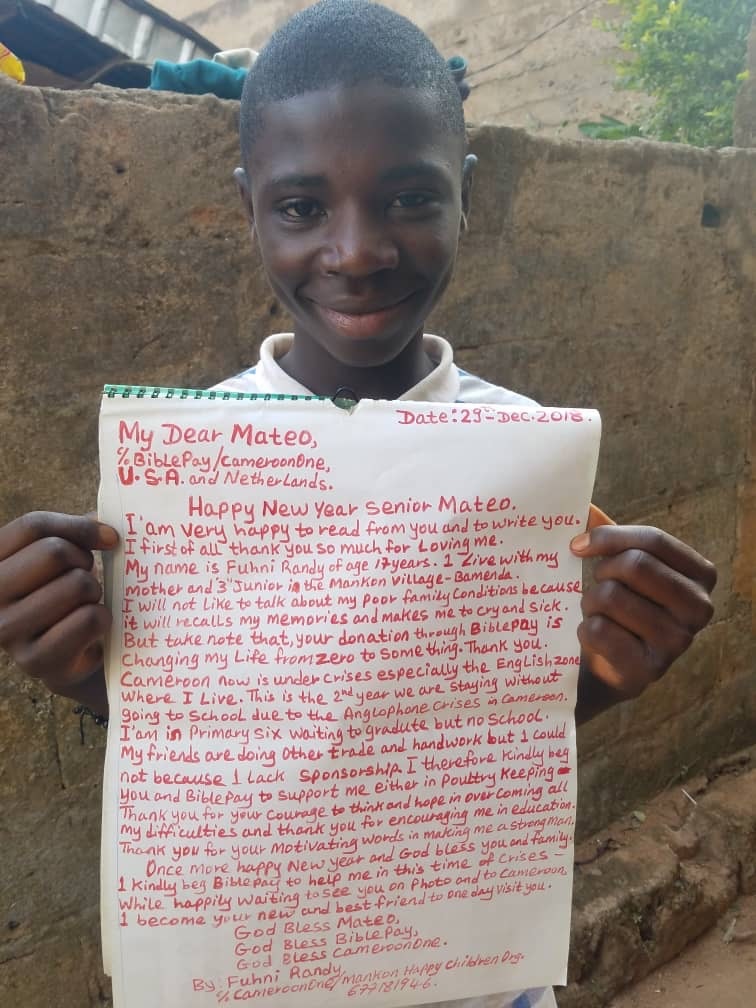 Date: 29th Dec. 2018.
My Dear Mateo,
℅ BiblePay/CameroonOne,
U.S.A. and Netherlands.
Happy New Year Senior Mateo.
I'am very happy to read from you and to write you.
I first of all thank you so much for Loving me.
My name is Fuhni Randy of age 17years. I Live with my
mother and 3 Junior in the Mankon Village-Bamenda.
I will not like to talk about my poor family Conditions because
it will recalls my Memories and makes me to cry and Sick.
But take note that, your donation through Biblepay is
Changing my Life from zero to Something. Thank you.
Cameroon now is under crises especially the English zone
Where I Live. This is the 2nd year we are Staying without
going to School due to the Anglophone Crises in Cameroon.
I'am in Primary Six waiting to gradute but no School.
My friends are doing other trade and handwork but I could
not because I Lack Sponsorship. I therefore Kindly beg
you and BiblePay to Support me Either in Poultry Keeping
Thank you for your Courage to think and hope in over Coming all
my difficulties and thank you for encouraging me in education.
Thank you for your Motivating words in making me a strong man.
Once more happy New year and God bless you and family.
I Kindly beg Biblepay to help me in this time of Crises –
While happily Waiting to See you on Photo and to Cameroon.
I become your new and best friend to one day visit you.
God Bless Mateo,
God Bless BiblePay,
God Bless CameroonOne.
By: Fuhni Randy
℅ CameroonOne/Mankon Happy Children Org.
677181946.